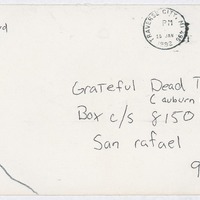 TRAVERSE CITY, MI 496
PM
15 JAN
1992
Grateful Dead T
(auburn
Box c/s 8150
San rafael
9